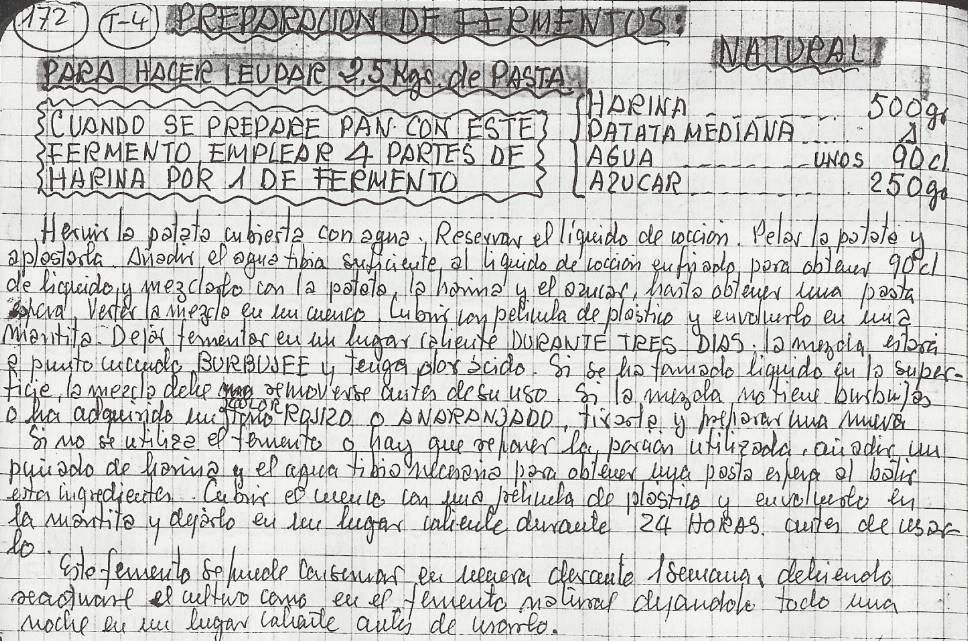 172 T-4 PREPARACION DE FERMENTOS:
NATURAL
PARA HACER LEUDAR 2,5 Kgs. de PASTA
CUANDO SE PREPARE PAN CON ESTE
FERMENTO, EMPLEAR 4 PARTES DE
HARINA POR 1 DE FERMENTO
HARINA 500 gr
PATATA MEDIANA 1
AGUA UNOS 90 cl.
AZUCAR 250 gr
Hervir la patata cubierta con agua. Reservar el líquido de cocción. Pelar la patata y
aplastarla. Añadir el agua tibia suficiente al líquido de cocción enfriado, para obtener 90 cl
de líquido, y mezclarlo con la patata, la harina y el azucar, hasta obtener una pasta
espesa. Verter la mezcla en un cuenco. Cubrir con película de plastico y envolverlo en una
mantita. Dejar fermentar en un lugar caliente DURANTE TRES DIAS. la mezcla estará
a punto cuando BURBUJEE y tenga olor ácido. Si se ha formado liquido en la super-
ficie, la mezcla debe removerse antes de su uso. Si la mezcla no tiene burbujas
o ha adquirido un COLOR ROJIZO o ANARANJADO, tirarla y preparar una nueva
Si no se utiliza el fermento o hay que reponer la porción utilizada, añadir un
puñado de harina y el agua tibia necesaria para obtener una pasta espesa al batir
estos ingredientes. Cubrir el cuenco con una película de plastico y envolverlo en
la mantita y dejarlo en un lugar caliente durante 24 HORAS. antes de usar-
lo.
Este fermento se puede conservar en nevera durante 1 semana, debiendo
reactivarse el cultivo como en el fermento natural dejandole toda una
noche en un lugar caliente antes de usarlo.